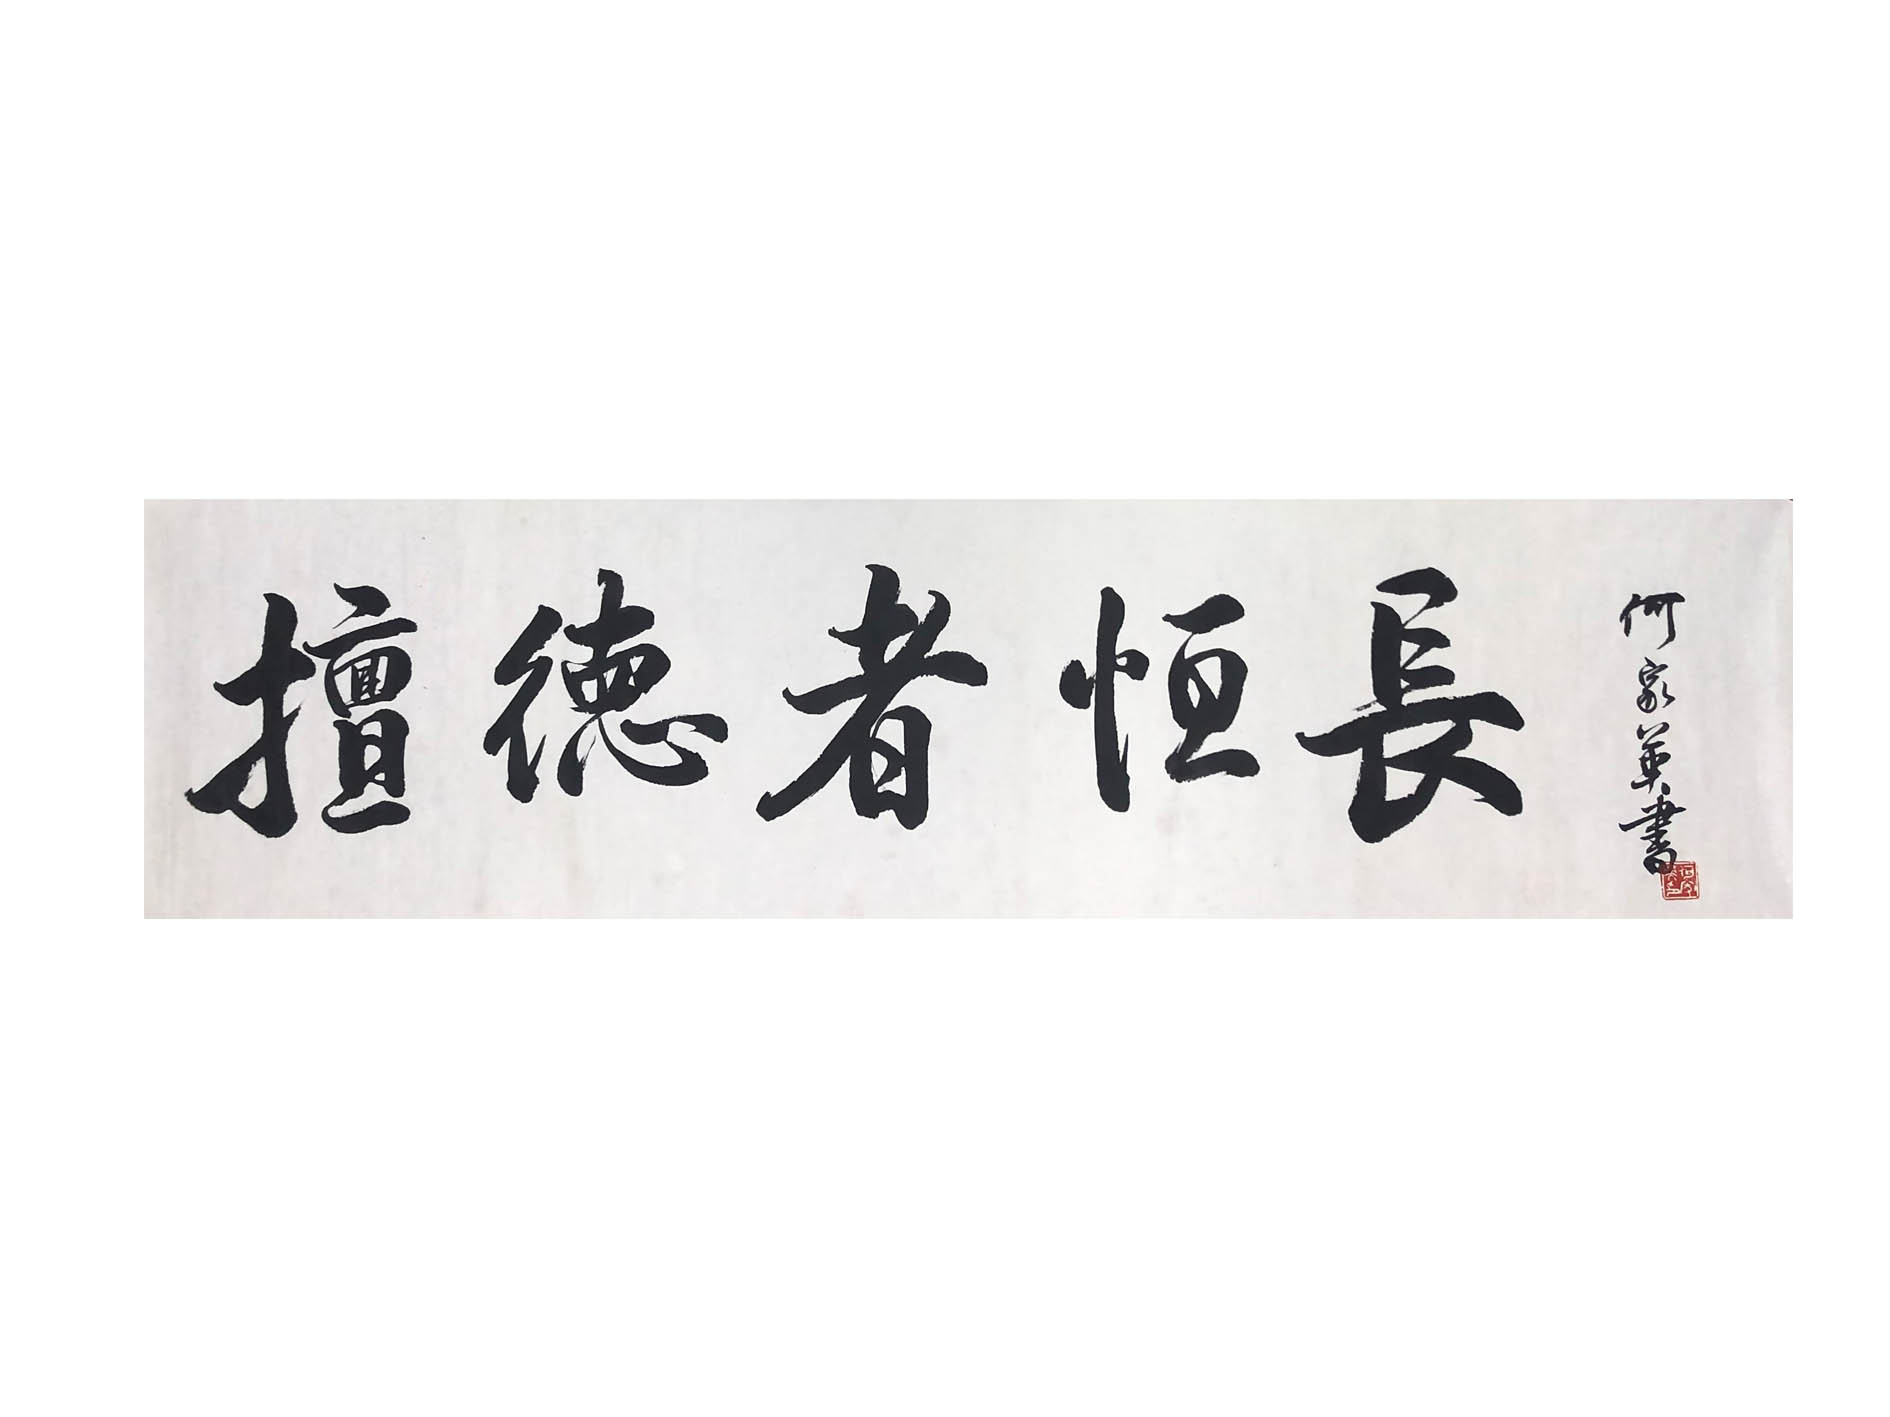 擅德者恒長
何家英書